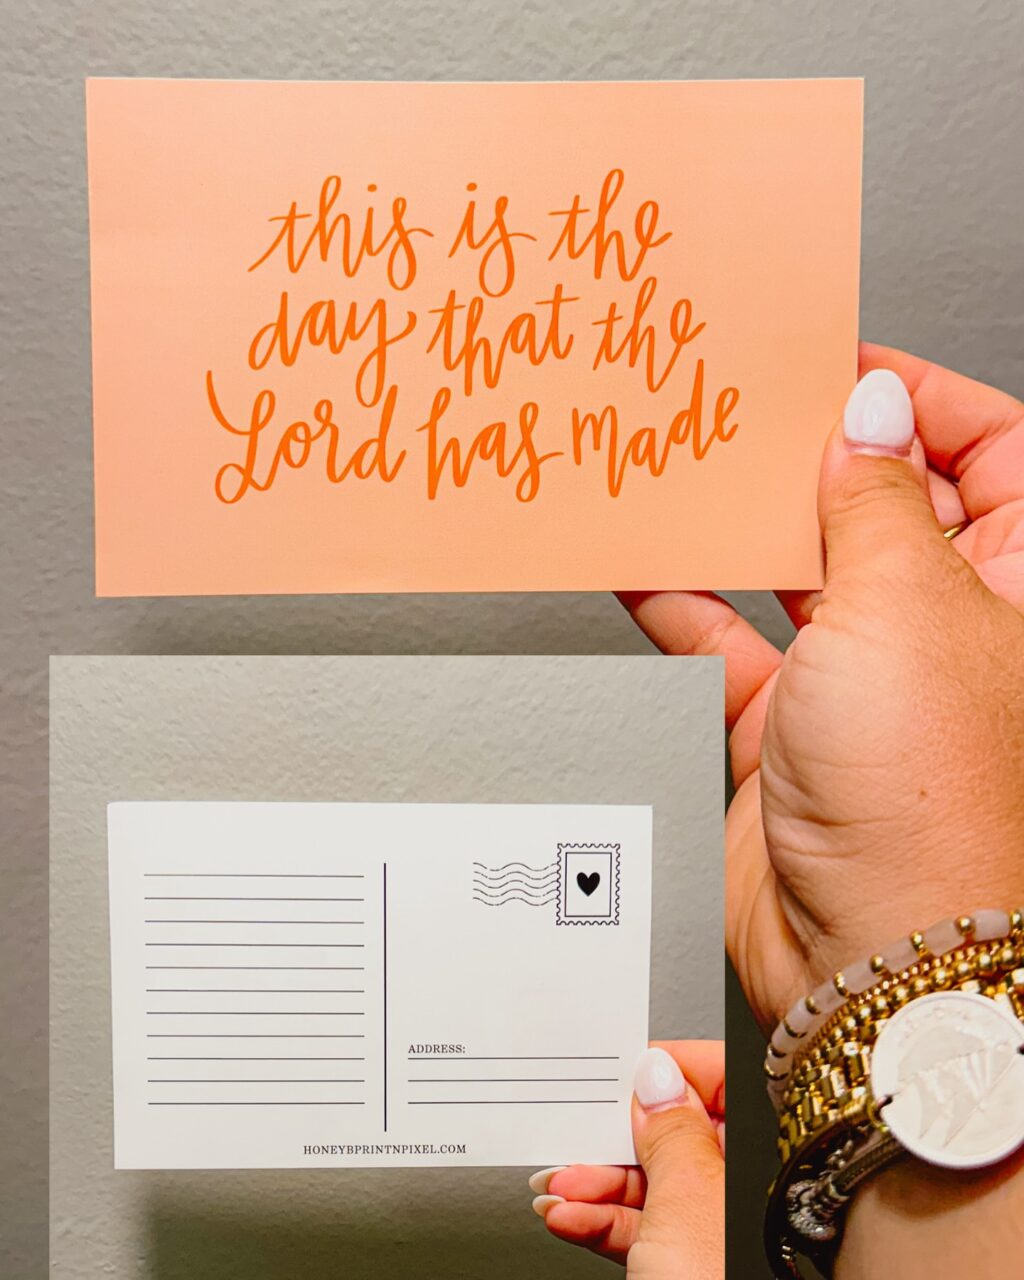 this is the
day that the
Lord has made
ADDRESS:
HONEYBPRINTNPIXEL.COM